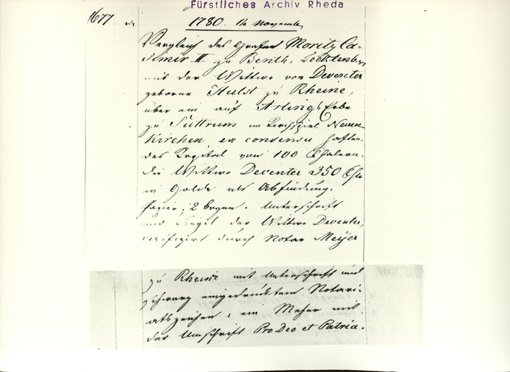 Fürstliches Archiv Rheda
1677
1780. 14 November
Vergleich des Grafen Moritz Ca-
simir II zu Benth. Tecklenburg
mit der Wittwe von Deventer
geborne Hulst zu Rheine,
über ein auf Arlings Erbe
zu Suttrum im Kirchspiel Neuen-
kirchen ex consensu haften-
des Capital von 100 Thalern.
Die Wittwe Deventer 350 Thlr
in Golde als Abfindung.
Papier, 2 bogen. Unterschrift
und Siegel der Wittwe Deventer,
certifizirt durch Notar Meyer
zu Rheine mit Unterschrift und
eingedrucktem Notari-
atszeichen: ein Mäher mit
der Umschrift Pro Deo et Patria.